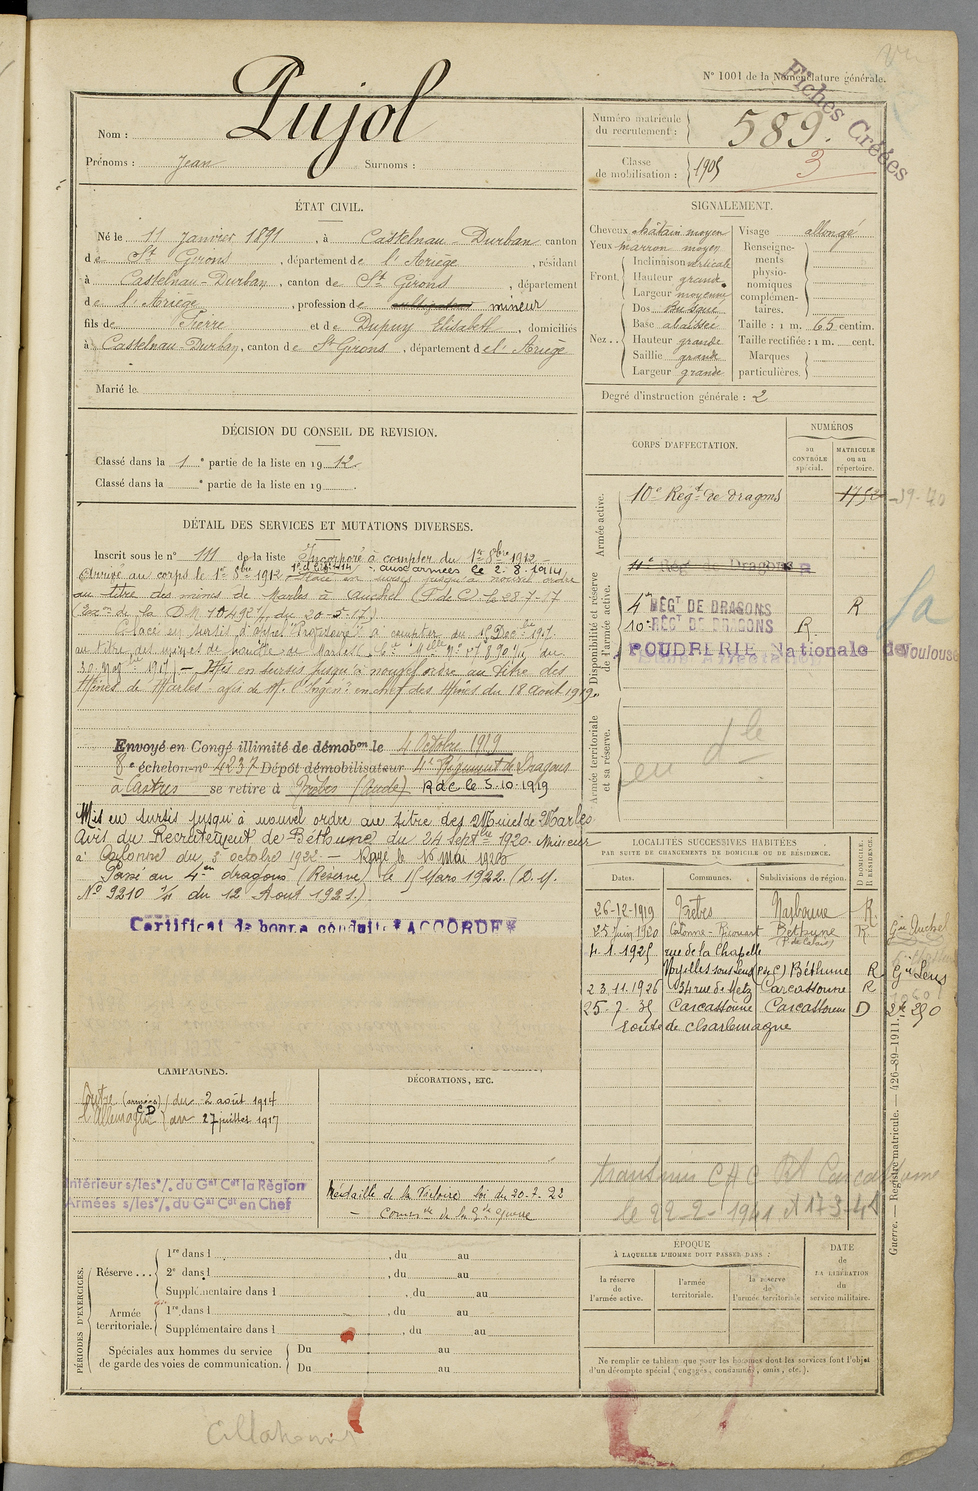 N° 1001 de la Nomenclature générale.
Fiches Créées
Nom : Pujol
Prénoms : Jean Surnoms :
Numéro matricule du recrutement : 589.
Classe de mobilisation : 1905
3
ÉTAT CIVIL.
Né le 11 Janvier 1891, à Castelnau-Durban canton
de St Girons, département de l'Ariège, résidant
à Castelnau-Durban, canton de St Girons, département
de l'Ariège, profession de cultivateur mineur
fils de Pierre et de Dupuy Elisabeth, domiciliés
à Castelnau-Durban, canton de St Girons, département de l'Ariège
Marié le
SIGNALEMENT.
Cheveux châtain moyen
Yeux marron moyen
Front. Inclinaison verticale
Hauteur grande
Largeur moyenne
Nez... Dos busqué
Base abaissée
Hauteur grande
Saillie grande
Largeur grande
Visage allongé
Renseignements physionomiques complémentaires.
Taille : 1 m. 65 centim.
Taille rectifiée : 1 m. cent.
Marques particulières.
Degré d'instruction générale : 2
DÉCISION DU CONSEIL DE REVISION.
Classé dans la 1e partie de la liste en 1912
Classé dans la e partie de la liste en 19
CORPS D'AFFECTATION.
NUMÉROS
au CONTRÔLE spécial.
MATRICULE ou au répertoire.
Armée active.
10e Régt de dragons
Disponibilité et réserve de l'armée active.
4e Rég de Dragons
4e RÉGT DE DRAGONS R
10e RÉGT DE DRAGONS R
POUDRERIE Nationale de Toulouse
Armée territoriale et sa réserve.
DÉTAIL DES SERVICES ET MUTATIONS DIVERSES.
Inscrit sous le n° 111 de la liste Incorporé à compter du 1er 8bre 1912
Arrivé au corps le 1er 8bre 1912 aux armées le 2.8.1914
Placé en sursis jusqu'à nouvel ordre
au titre des mines de Marles à Auchel (P. de C.) le 28-7-17
Placé en sursis d'appel
au titre des mines de houille de Marles
30 Nov 1917) - Mis en sursis jusqu'à nouvel ordre au titre des
Mines de Marles avis de Mr l'Ingénr en chef des Mines du 18 août 1919.
Envoyé en Congé illimité de démobon le 4 Octobre 1919
8e échelon n° 4237 Dépôt démobilisateur 4e Régiment de Dragons
à Castres se retire à Trèbes (Aude) R d C le 5.10.1919
Mis en sursis jusqu'à nouvel ordre au titre des Mines de Marles
Avis du Recrutement de Béthune du 24 Septbre 1920. Mineur
à Calonne du 3 octobre 1922. - Rayé le 16 Mai 1926
Passé au 4em dragons (Réserve) le 15 Mars 1922 (D.M.
N° 9210 1/1 du 12 Août 1921.)
Certificat de bonne conduite "ACCORDE"
LOCALITÉS SUCCESSIVES HABITÉES
PAR SUITE DE CHANGEMENTS DE DOMICILE OU DE RÉSIDENCE.
D DOMICILE. R RÉSIDENCE.
Dates. Communes. Subdivisions de région.
26-12-1919 Trèbes Narbonne R.
25 Juin 1920 Calonne-Ricouart Béthune (P. de Calais) R. Gie Auchel
4.1.1925 rue de la Chapelle
Noyelles sous Lens (P de C) Béthune R Gie Lens
23.11.1926 34 rue de Metz Carcassonne R
25-7-35 Carcassonne Carcassonne D
route de Charlemagne
CAMPAGNES.
Contre l'Allemagne (armées) CD du 2 août 1914 au 27 juillet 1917
Intérieur s/les o/. du Gal Cdt la Région
Armées s/les o/. du Gal Cdt en Chef
DÉCORATIONS, ETC.
Médaille de la Victoire loi du 20.7.22
- Commve de la Gde Guerre
transmis CHC Bt Carcassonne
le 22-2-1941
PÉRIODES D'EXERCICES.
Réserve... 1re dans l , du au
2e dans l , du au
Supplémentaire dans l , du au
Armée territoriale. 1re dans l , du au
Supplémentaire dans l , du au
Spéciales aux hommes du service de garde des voies de communication. Du au
Du au
ÉPOQUE
À LAQUELLE L'HOMME DOIT PASSER DANS :
la réserve de l'armée active.
l'armée territoriale.
la réserve de l'armée territoriale
DATE de LA LIBÉRATION du service militaire.
Ne remplir ce tableau que pour les hommes dont les services font l'objet
d'un décompte spécial (engagés, condamnés, omis, etc.).
Guerre. — Registre matricule. — 426-89-1911.